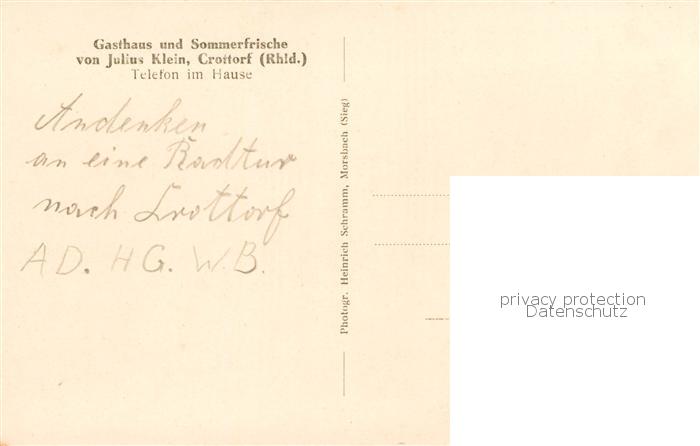 Gasthaus und Sommerfrische
von Julius Klein, Crottorf (Rhld.)
Telefon im Hause
Andenken
an eine Radtur
nach Crottorf
AD. HG. W.B.
Photogr. Heinrich Schramm, Morsbach (Sieg)
privacy protection
Datenschutz